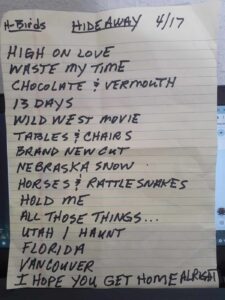 H-Birds HIDEAWAY 4/17
HIGH ON LOVE
WASTE MY TIME
CHOCOLATE & VERMOUTH
13 DAYS
WILD WEST MOVIE
TABLES & CHAIRS
BRAND NEW CUT
NEBRASKA SNOW
HORSES & RATTLESNAKES
HOLD ME
ALL THOSE THINGS...
UTAH I HAUNT
FLORIDA
VANCOUVER
I HOPE YOU GET HOME ALRIGHT